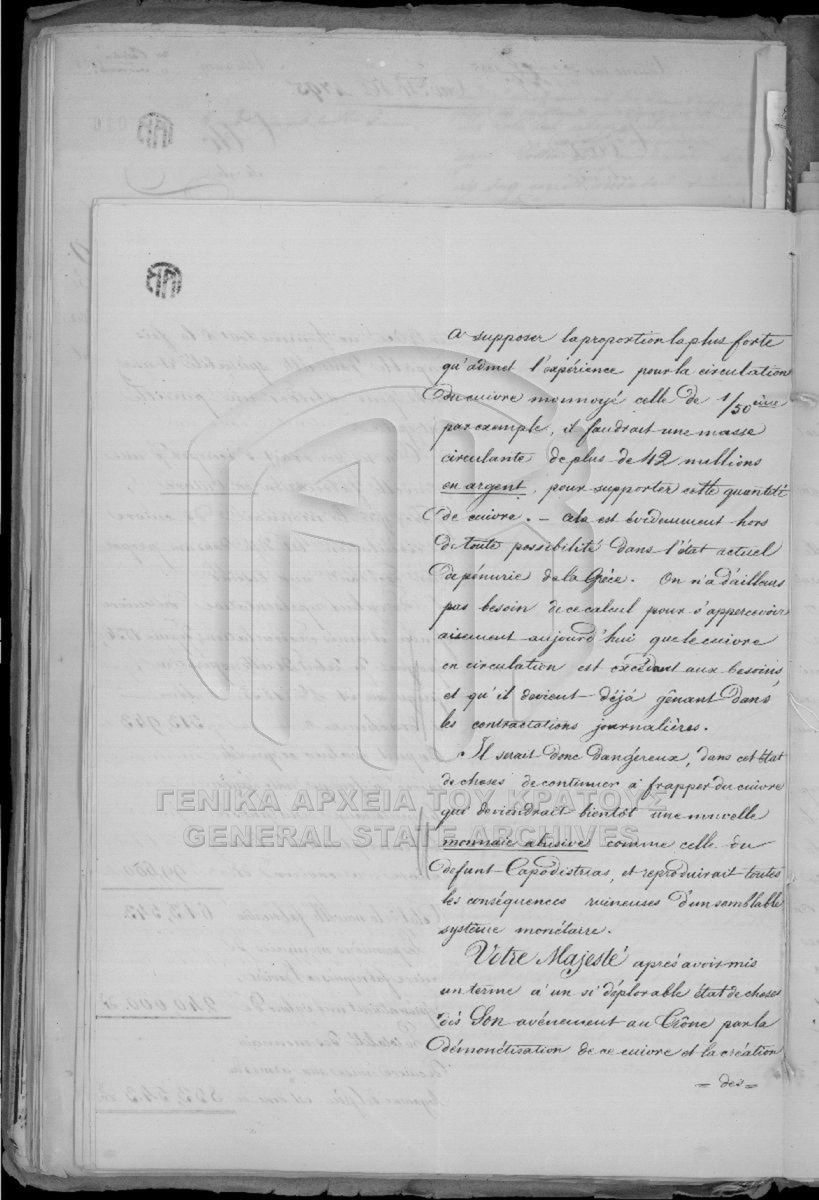 A supposer la proportion la plus forte
qu'admet l'expérience pour la circulation
du cuivre monnoyé celle de 1/50 ème
par exemple, il faudrait une masse
circulante de plus de 42 millions
en argent, pour supporter cette quantité
de cuivre. — Cela est évidemment hors
de toute possibilité dans l'état actuel
de pénurie de la Grèce. On n'a d'ailleurs
pas besoin de ce calcul pour s'appercevoir
aisement aujourd'hui que le cuivre
en circulation est excédant aux besoins,
et qu'il devient déjà gênant dans
les contractations journalières.
Il serait donc dangéreux, dans cet état
de choses de continuer à frapper du cuivre
qui deviendrait bientôt une nouvelle
monnaie abusive comme celle du
défunt Capodistrias, et reproduirait toutes
les conséquences ruineuses d'un semblable
système monétaire.
Votre Majesté après avoir mis
un terme à un si déplorable état de choses
dès Son avénement au Trône par la
démonétisation de ce cuivre et la création
= des =
ΓΕΝΙΚΑ ΑΡΧΕΙΑ ΤΟΥ ΚΡΑΤΟΥΣ
GENERAL STATE ARCHIVES